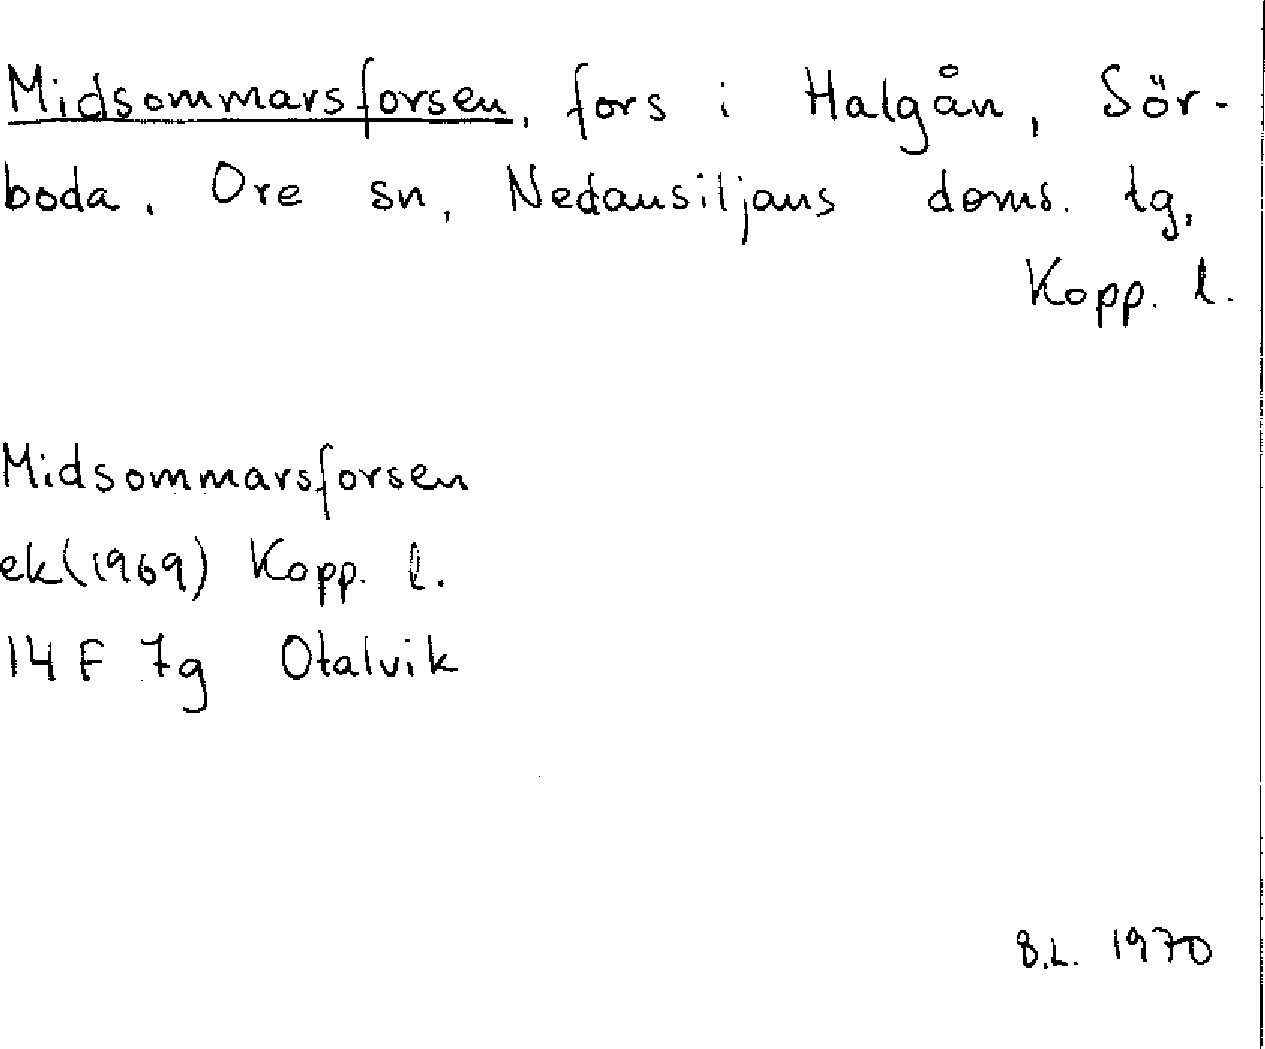 Midsommarsforsen, fors i Halgån, Sör-
boda, Ore sn, Nedansiljans doms. tg,
Kopp. l.
Midsommarsforsen
ek (1969) Kopp. l.
14 F 7g Otalvik
B.L. 1970